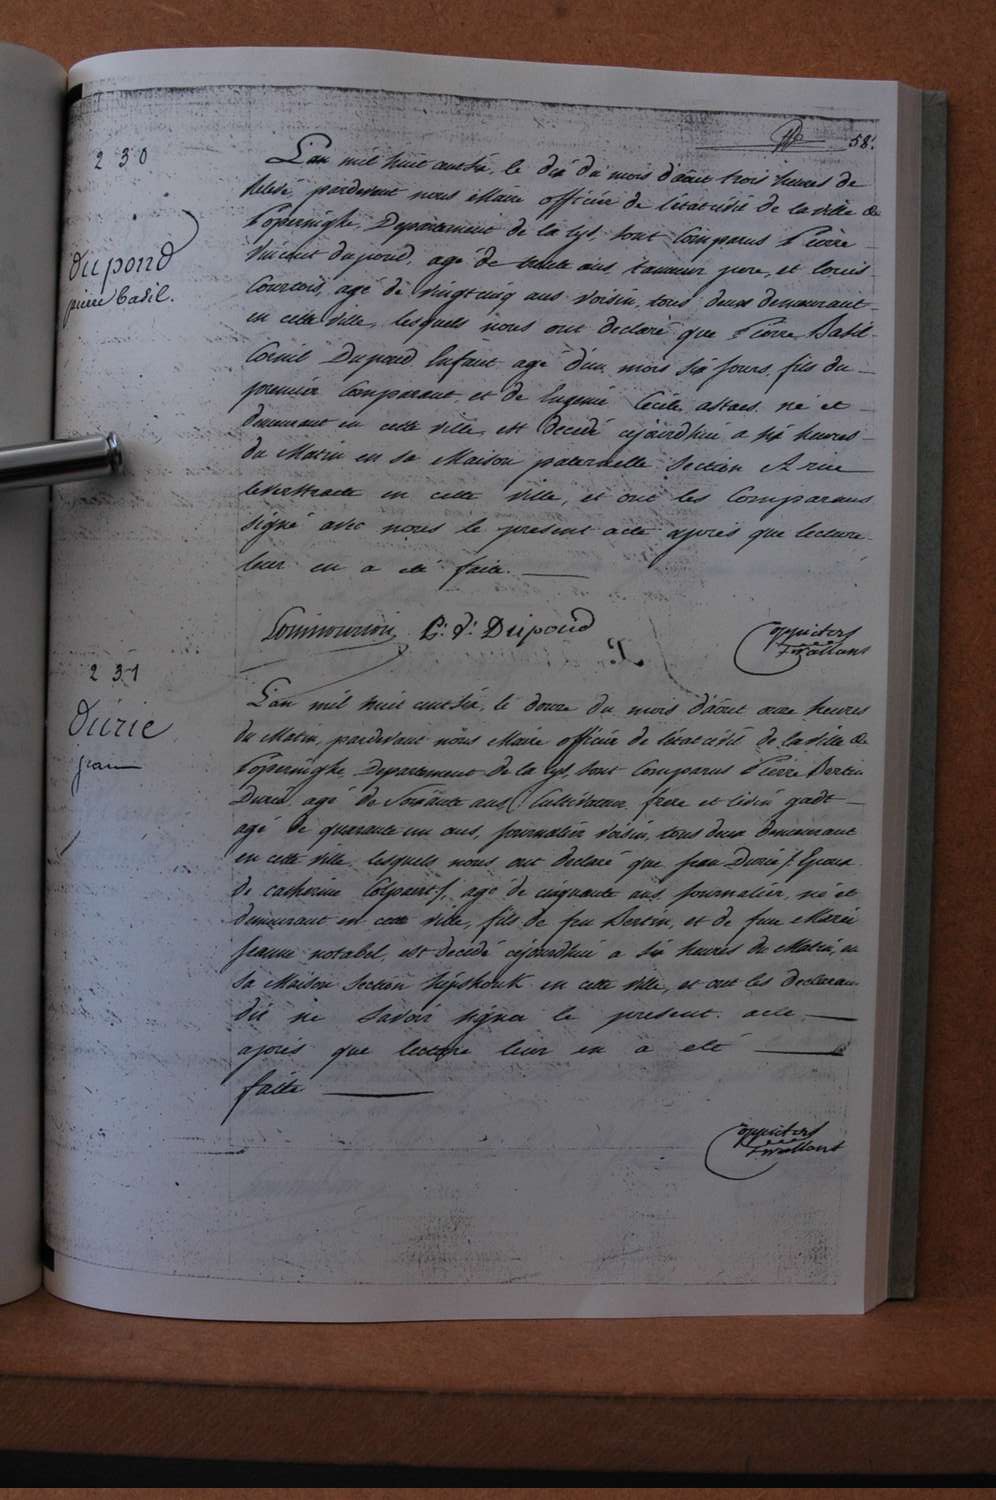 58.
230
L'an mil huit cent six, le dix du mois d'août trois heures de
relevé, pardevant nous Maire officier de l'état civil de la ville de
Poperinghe, Departement de la Lys, sont comparus Pierre
Vincent Dupond, agé de trente ans, tanneur pere, et Louis
Courtois, agé de vingtcinq ans voisin, tous deux demeurant
en cette ville, lesquels nous ont declaré que Pierre Basil
Dupond
pierre basil.
Corneil Dupond Enfant agé d'un mois six jours, fils du
premier Comparant et de Eugenie Cecile astaes né et
demeurant en cette ville, est Decedé cejourdhui a six heures
du Matin en sa Maison paternelle Section A rue
en cette ville, et ont les Comparans
signé avec nous le present acte après que lecture
leur en a été faite.
P: V: Dupond
231
Durie
jean
L'an mil huit cent six, le douze du mois d'août onze heures
du Matin, pardevant nous Maire officier de l'état civil de la ville de
Poperinghe, Departement de la Lys, sont comparus Pierre Bertin
Durié, agé de Soixante ans, Cultivateur, frere et Livin gadt
agé de quarante un ans, journalier voisin, tous deux demeurant
en cette ville, lesquels nous ont declaré que jean Durié / Epoux
de catherine Colpaert /, agé de cinquante ans, journalier, né et
demeurant en cette ville, fils de feu Bertin, et de feue Marie
Jeanne notabel, est decedé cejourdhui a six heures du Matin, en
sa Maison Section en cette ville, et ont les declarans
dit ne savoir signer le present acte
après que lecture leur en a été
faite